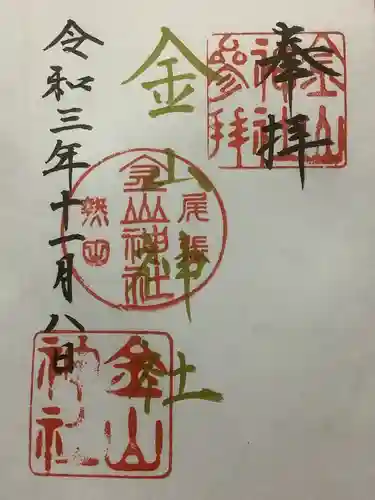 奉拝
金山神社
参拝
金山神社
尾張
金山神社
熱田
金山神社
令和三年十一月八日